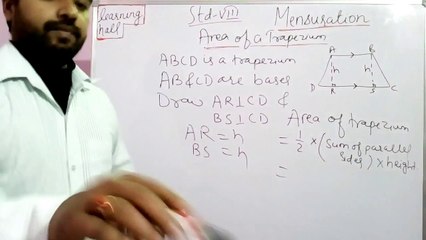 learning hall
Std-VIII Mensuration
Area of a Trapezium
ABCD is a trapezium
AB & CD are bases
Draw AR⊥CD &
BS⊥CD
AR = h
BS = h
A B
h h
D R S C
Area of trapezium
= 1/2 × (sum of parallel sides) × height
=